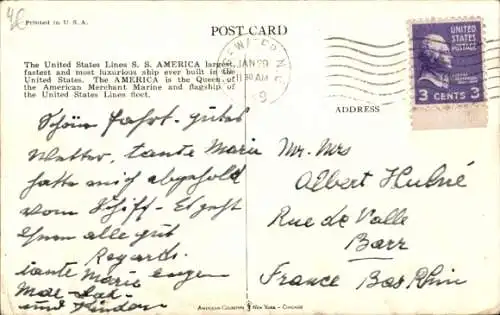 Printed in U.S.A.
POST CARD
The United States Lines S. S. AMERICA largest,
fastest and most luxurious ship ever built in the
United States. The AMERICA is the Queen of
the American Merchant Marine and flagship of
the United States Lines fleet.
JAN 29
11 30 AM
UNITED STATES
POSTAGE
3 CENTS 3
ADDRESS
Schöne Fahrt. gutes
Wetter, tante Marie
hatte mich abgehold
vom Schiff. Es geht
Ihnen alle gut
Regards.
tante Marie
und Kinder
Mr. Mrs
Albert Hubné
Rue de Valle
Barr
France Bas Rhin
AMERICAN COLORTYPE NEW YORK - CHICAGO